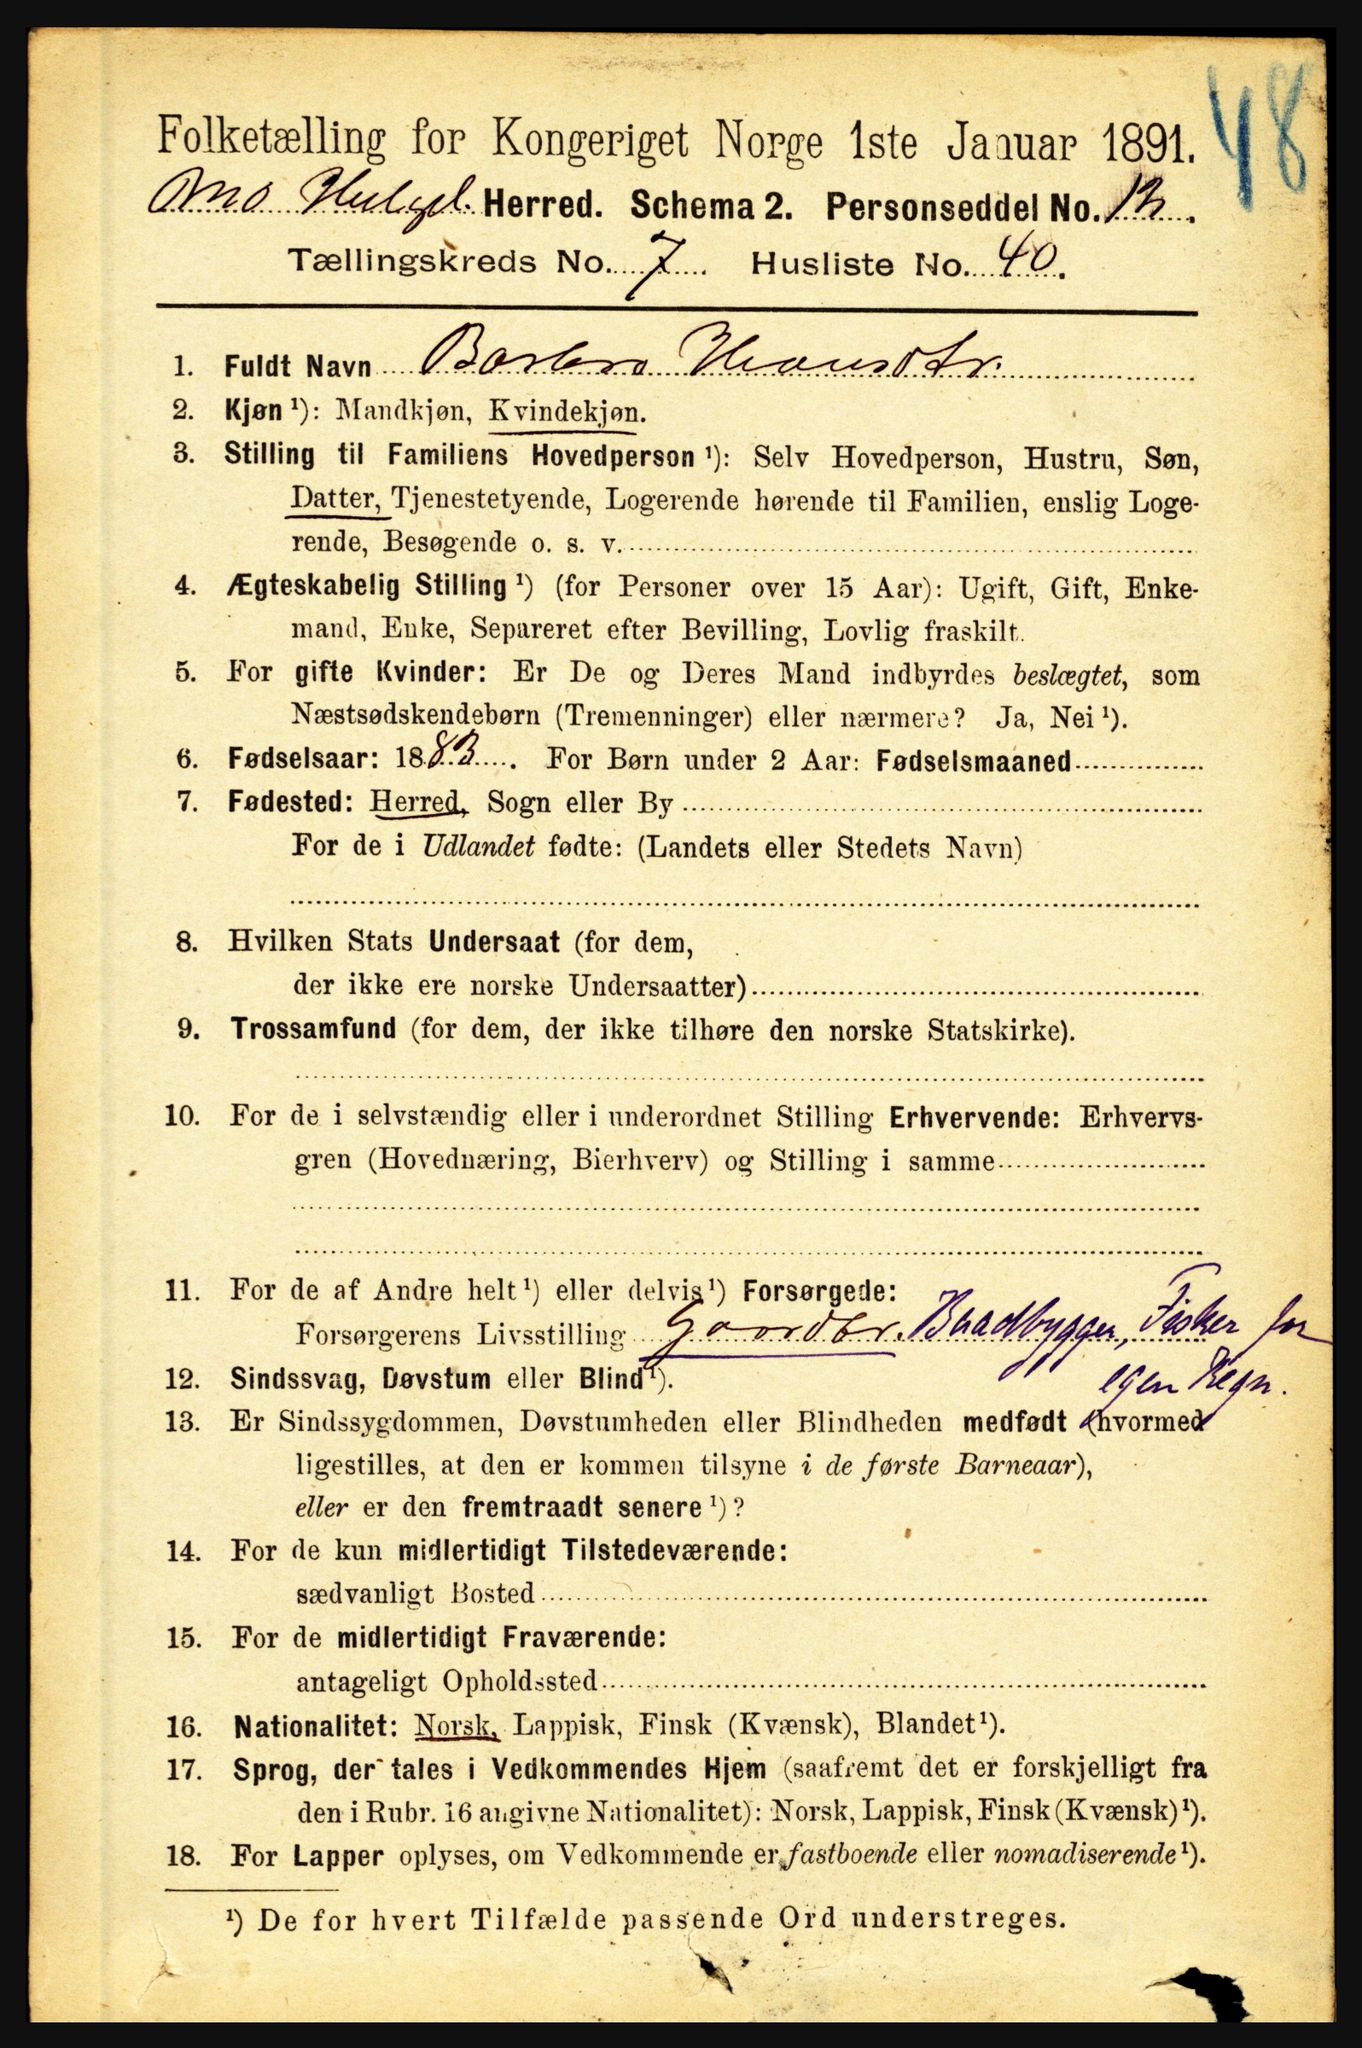 48
Folketælling for Kongeriget Norge 1ste Januar 1891.
Mo Helgel. Herred. Schema 2. Personseddel No. 12.
Tællingskreds No. 7. Husliste No. 40.
1. Fuldt Navn Barbro Hansdtr.
2. Kjøn ¹): Mandkjøn, Kvindekjøn.
3. Stilling til Familiens Hovedperson ¹): Selv Hovedperson, Hustru, Søn,
Datter, Tjenestetyende, Logerende hørende til Familien, enslig Loge-
rende, Besøgende o. s. v.
4. Ægteskabelig Stilling ¹) (for Personer over 15 Aar): Ugift, Gift, Enke-
mand, Enke, Separeret efter Bevilling, Lovlig fraskilt.
5. For gifte Kvinder: Er De og Deres Mand indbyrdes beslægtet, som
Næstsødskendebørn (Tremenninger) eller nærmere? Ja, Nei ¹).
6. Fødselsaar: 1883. For Børn under 2 Aar: Fødselsmaaned
7. Fødested: Herred, Sogn eller By
For de i Udlandet fødte: (Landets eller Stedets Navn)
8. Hvilken Stats Undersaat (for dem,
der ikke ere norske Undersaatter)
9. Trossamfund (for dem, der ikke tilhøre den norske Statskirke).
10. For de i selvstændig eller i underordnet Stilling Erhvervende: Erhvervs-
gren (Hovednæring, Bierhverv) og Stilling i samme
11. For de af Andre helt ¹) eller delvis ¹) Forsørgede:
Forsørgerens Livsstilling Gaardbr. Baadbygger, Fisker for
egen Regn.
12. Sindssvag, Døvstum eller Blind ¹).
13. Er Sindssygdommen, Døvstumheden eller Blindheden medfødt (hvormed
ligestilles, at den er kommen tilsyne i de første Barneaar),
eller er den fremtraadt senere ¹)?
14. For de kun midlertidigt Tilstedeværende:
sædvanligt Bosted
15. For de midlertidigt Fraværende:
antageligt Opholdssted
16. Nationalitet: Norsk, Lappisk, Finsk (Kvænsk), Blandet ¹).
17. Sprog, der tales i Vedkommendes Hjem (saafremt det er forskjelligt fra
den i Rubr. 16 angivne Nationalitet): Norsk, Lappisk, Finsk (Kvænsk) ¹).
18. For Lapper oplyses, om Vedkommende er fastboende eller nomadiserende ¹).
¹) De for hvert Tilfælde passende Ord understreges.